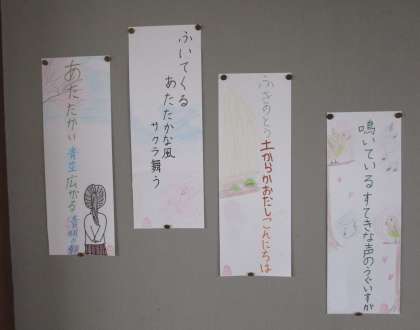 鳴いている すてきな声のうぐいすが
ふきのとう 土からかおだしこんにちは
ふいてくる
あたたかな風
サクラ舞う
あたたかい 青空 広がる